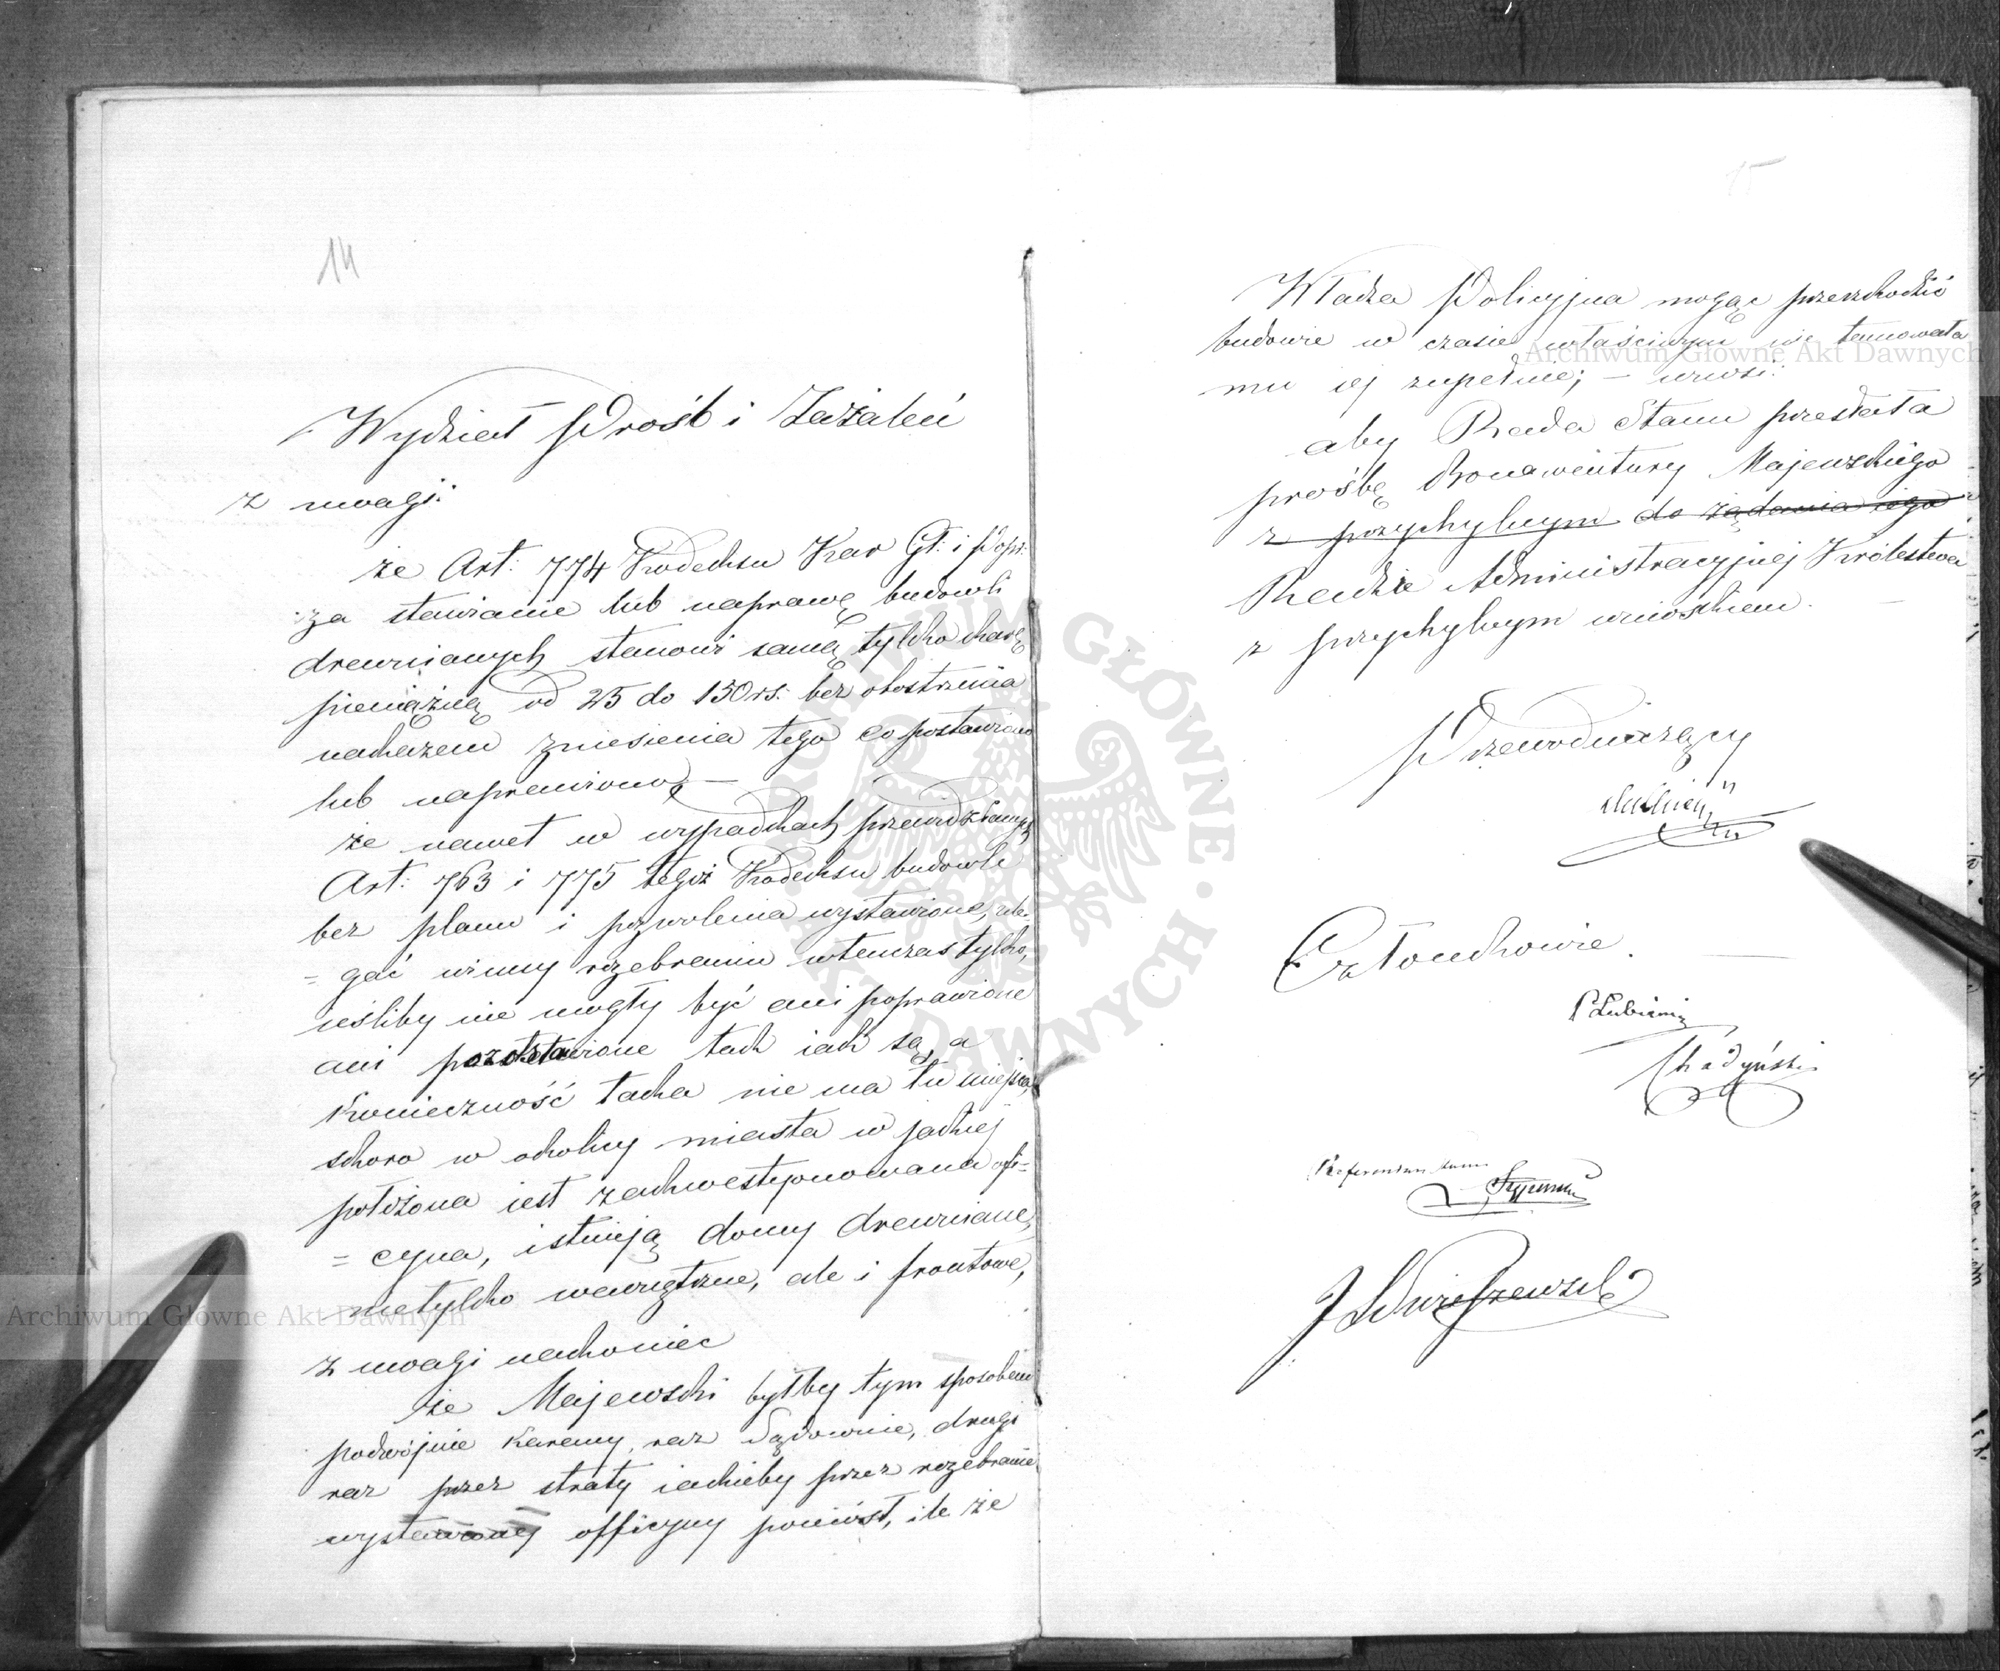 14
Wydział Próśb i Zażaleń
z uwagi:
że Art: 774 Kodeksu Kar Gł: i Popr:
za stawianie lub naprawę budowli
drewnianych stanowi samą tylko karę
pieniężną od 25 do 150 rs: bez obostrzenia
nakazem zniesienia tego co postawiono
lub naprawiono, —
że nawet w wypadkach przewidzianych
Art: 763 i 775 tegoż Kodeksu budowle
bez planu i pozwolenia wystawione, ule-
= gać winny rozebraniu wtenczas tylko,
jeśliby nie mogły być ani poprawione
ani pozostawione tak iak są, a
Konieczność taka nie ma tu miejsca,
skoro w okolicy miasta w jakiej
położona iest zakwestyonowana ofi=
= cyna, istnieją domy drewniane,
nietylko wewnętrzne, ale i frontowe,
z uwagi nakoniec
że Majewski byłby tym sposobem
podwójnie Karany, raz Sądownie, drugi
raz przez straty iakieby przez rozebranie
wystawionej officyny poniósł, ile że
15
Władza Policyjna mogąc przeszkodzić
budowie w czasie właściwym nie tamowała
mu iej zupełnie; — wnosi:
aby Rada Stanu przesłała
prośbę Bonawentury Majewskiego
z przychylnym do żądania iego
Radzie Administracyjnej Królestwa
z przychylnym wnioskiem. —
Przewodniczący
Członkowie. —
P Łubieński
Chądzyński
Referendarz Stanu
Archiwum Główne Akt Dawnych
Archiwum Główne Akt Dawnych
ARCHIWUM GŁÓWNE · AKT DAWNYCH ·